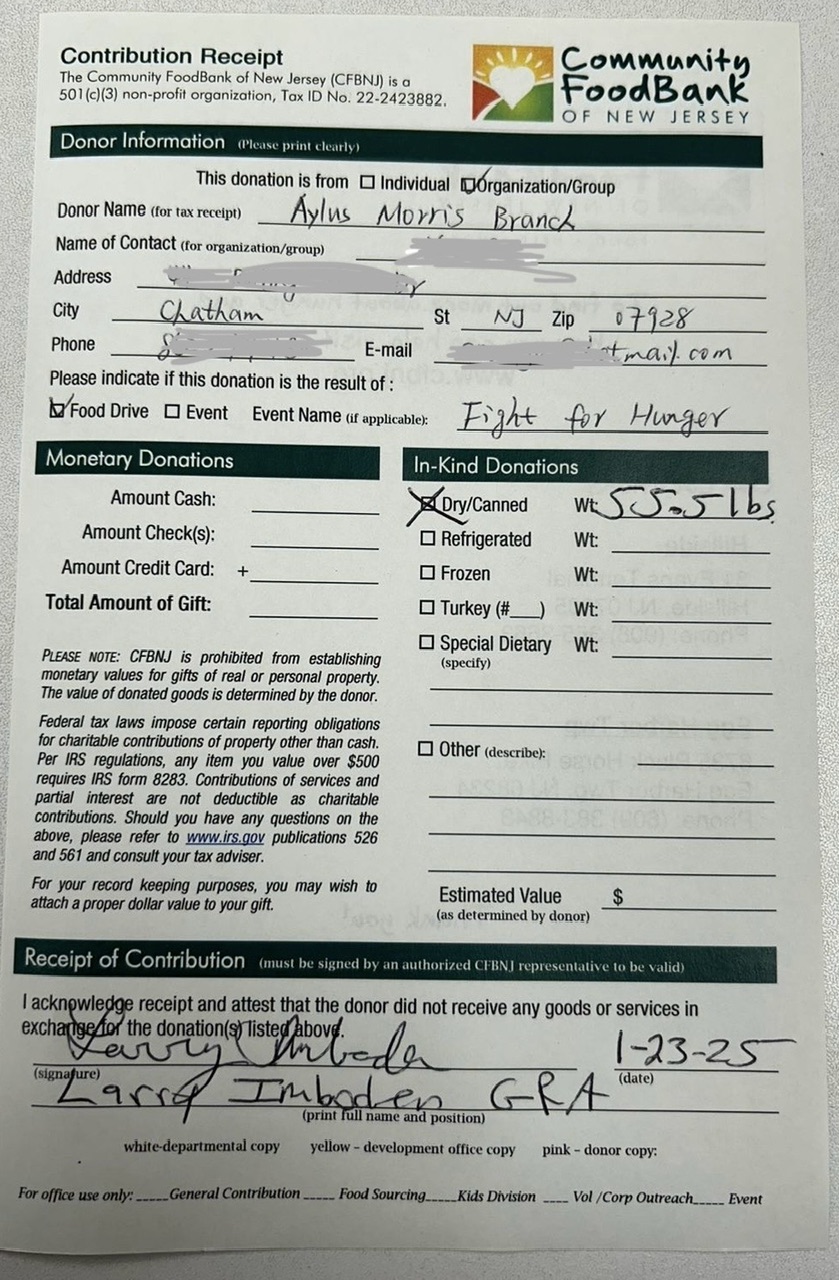 Contribution Receipt
The Community FoodBank of New Jersey (CFBNJ) is a
501(c)(3) non-profit organization, Tax ID No. 22-2423882.
Community
FoodBank
OF NEW JERSEY
Donor Information (Please print clearly)
This donation is from ☐ Individual ☑ Organization/Group
Donor Name (for tax receipt) Aylus Morris Branch
Name of Contact (for organization/group)
Address
City Chatham St NJ Zip 07928
Phone E-mail tmail.com
Please indicate if this donation is the result of :
☑ Food Drive ☐ Event Event Name (if applicable): Fight for Hunger
Monetary Donations
Amount Cash:
Amount Check(s):
Amount Credit Card: +
Total Amount of Gift:
PLEASE NOTE: CFBNJ is prohibited from establishing
monetary values for gifts of real or personal property.
The value of donated goods is determined by the donor.
Federal tax laws impose certain reporting obligations
for charitable contributions of property other than cash.
Per IRS regulations, any item you value over $500
requires IRS form 8283. Contributions of services and
partial interest are not deductible as charitable
contributions. Should you have any questions on the
above, please refer to www.irs.gov publications 526
and 561 and consult your tax adviser.
For your record keeping purposes, you may wish to
attach a proper dollar value to your gift.
In-Kind Donations
☒ Dry/Canned Wt: 55.5 lbs
☐ Refrigerated Wt:
☐ Frozen Wt:
☐ Turkey (#___) Wt:
☐ Special Dietary Wt:
(specify)
☐ Other (describe):
Estimated Value $
(as determined by donor)
Receipt of Contribution (must be signed by an authorized CFBNJ representative to be valid)
I acknowledge receipt and attest that the donor did not receive any goods or services in
exchange for the donation(s) listed above.
Larry Imboden 1-23-25
(signature) (date)
Larry Imboden GRA
(print full name and position)
white-departmental copy yellow – development office copy pink – donor copy:
For office use only: _____General Contribution _____ Food Sourcing_____Kids Division ____ Vol /Corp Outreach_____ Event